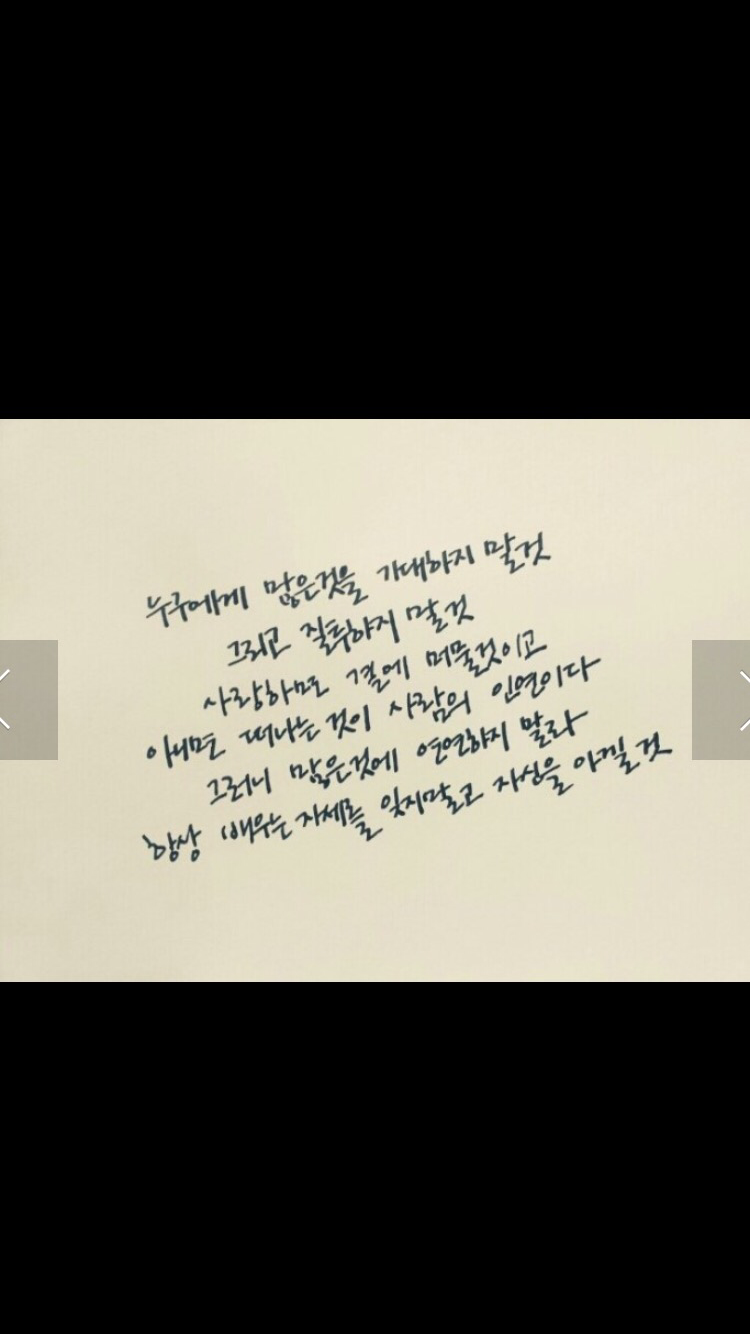 누구에게 많은것을 기대하지 말것
그리고 질투하지 말것
사랑하면 곁에 머물것이고
아니면 떠나는 것이 사람의 인연이다
그러니 많은것에 연연하지 말라
항상 배우는 자세를 잊지말고 자신을 아낄 것